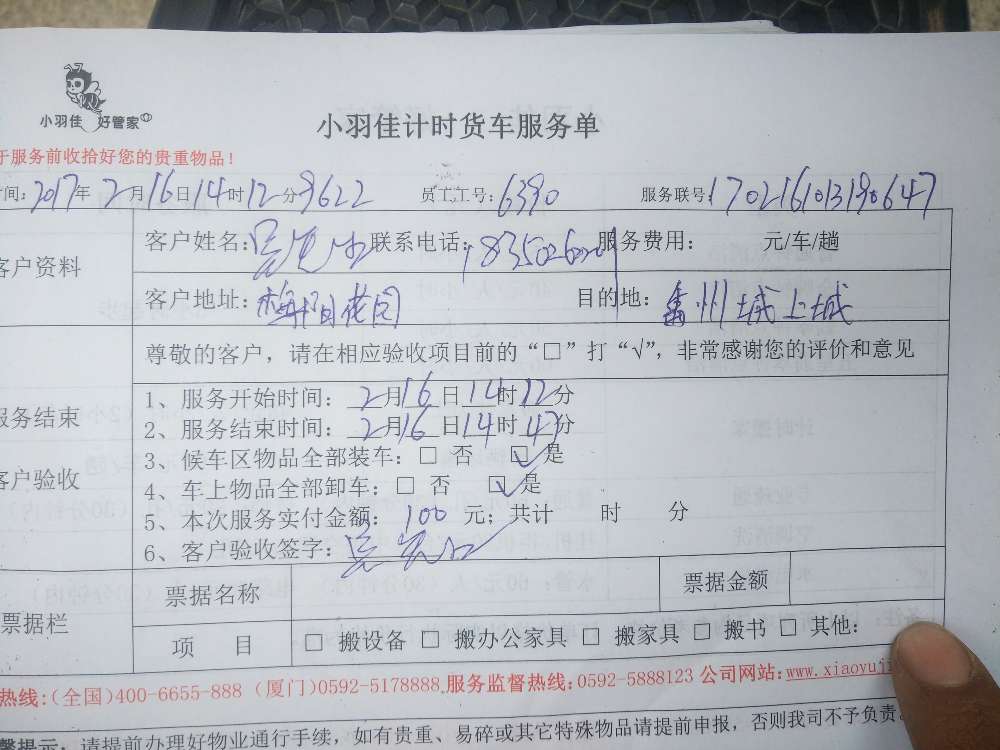 小羽佳 好管家
小羽佳计时货车服务单
于服务前收拾好您的贵重物品！
间：2017年2月16日14时12分9622 员工工号：6390 服务联号：1702161013190647
客户资料
客户姓名： 联系电话： 服务费用： 元/车/趟
客户地址：梅阳花园 目的地： 城上城
尊敬的客户，请在相应验收项目前的“□”打“√”，非常感谢您的评价和意见
服务结束
客户验收
1、服务开始时间：2月16日14时12分
2、服务结束时间：2月16日14时43分
3、候车区物品全部装车：□ 否 ☑ 是
4、车上物品全部卸车：□ 否 ☑ 是
5、本次服务实付金额：100元；共计 时 分
6、客户验收签字：
票据栏
票据名称 票据金额
项 目 □ 搬设备 □ 搬办公家具 □ 搬家具 □ 搬书 □ 其他：
热线：(全国)400-6655-888 (厦门)0592-5178888.服务监督热线：0592-5888123 公司网站：www.xiaoyuji
馨提示：请提前办理好物业通行手续，如有贵重、易碎或其它特殊物品请提前申报，否则我司不予负责